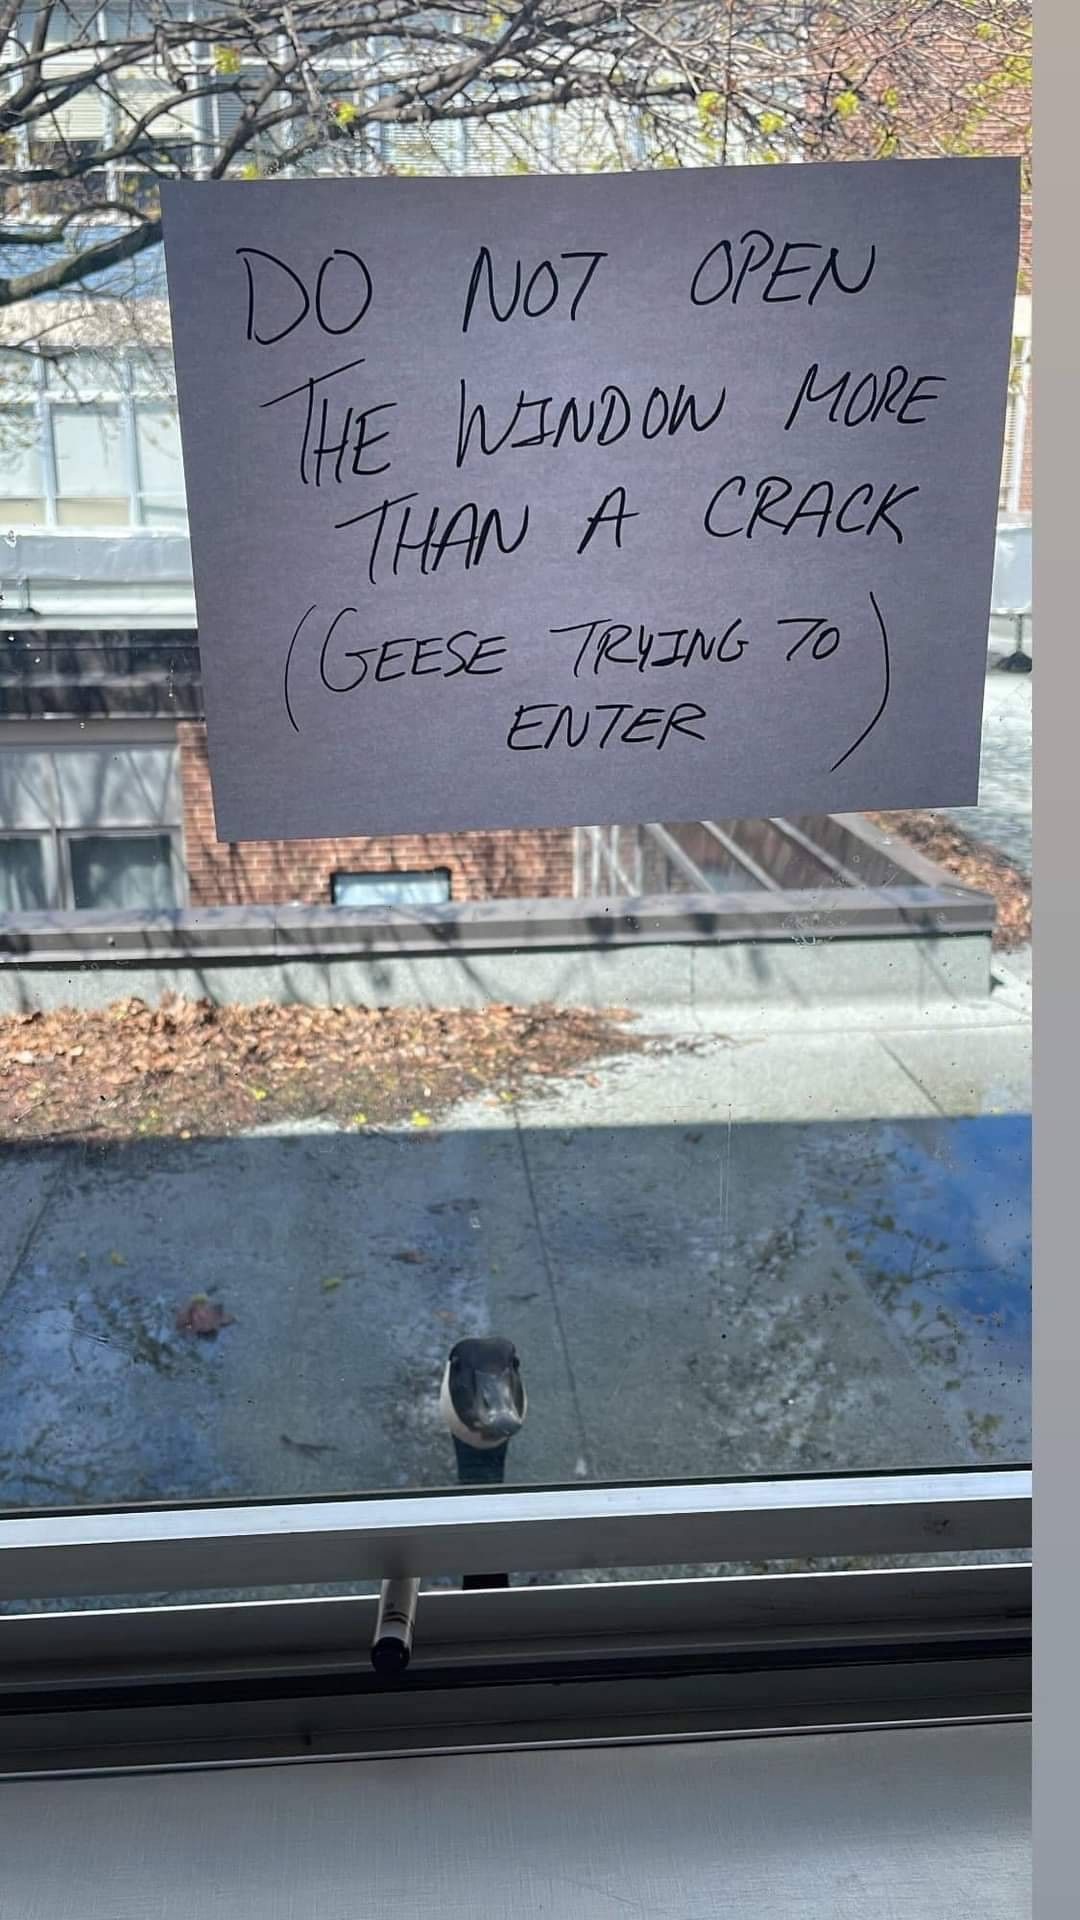 DO NOT OPEN
THE WINDOW MORE
THAN A CRACK
(GEESE TRYING TO
ENTER)